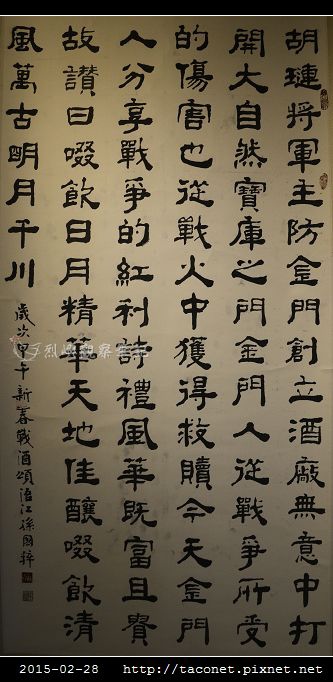 胡璉將軍主防金門創立酒廠無意中打
開大自然寶庫之門金門人從戰爭所受
的傷害也從戰火中獲得救贖今天金門
人分享戰爭的紅利詩禮風華既富且貴
故讚曰啜飲日月精華天地佳釀啜飲清
風萬古明月千川
歲次甲午新春戰酒頌浯江孫國粹
烈嶼觀察筆記
2015-02-28 http://taconet.pixnet.net